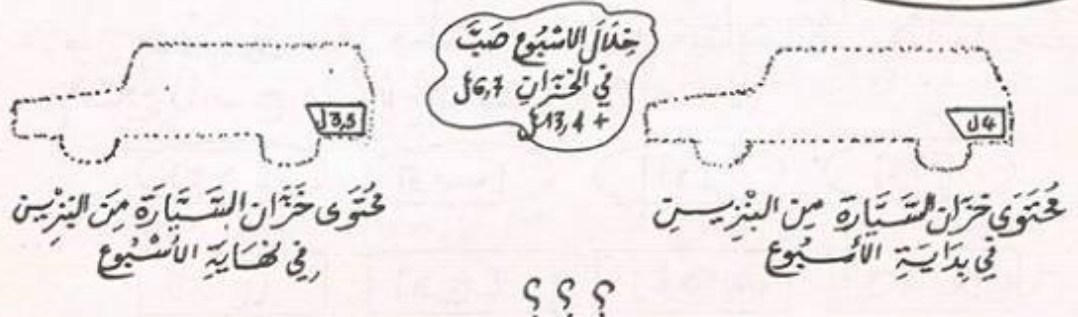 خِلَالَ الأسْبُوعِ صَبَّ
في الخَزَّانِ 6,7ل
+ 13,4ل
4ل
مُحْتَوَى خَزَّان السَّيَّارَةِ مِن البَنْزِيـن
في بِدَايَةِ الأُسْبُوع
3,5ل
مُحْتَوَى خَزَّان السَّيَّارَةِ مِنَ البَنْزِين
في نِهَايَةِ الأُسْبُوع
؟ ؟ ؟